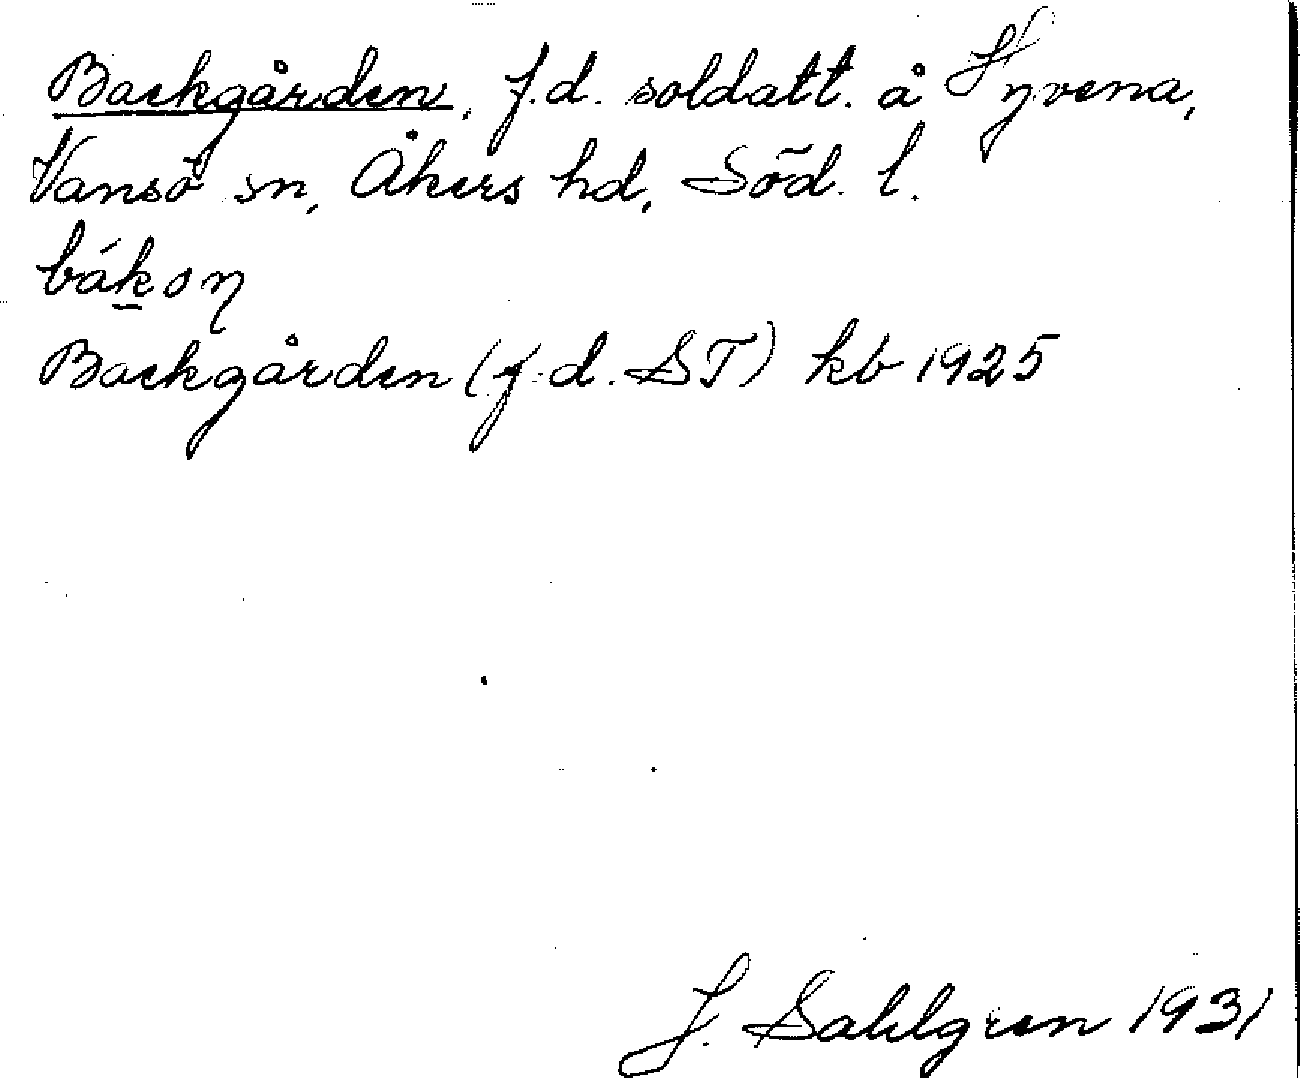 Backgården, f.d. soldatt. å Hyvena,
Vansö sn, Åkers hd, Söd. l.
bákoη
Backgården (f.d. ST) kb 1925
J. Sahlgren 1931